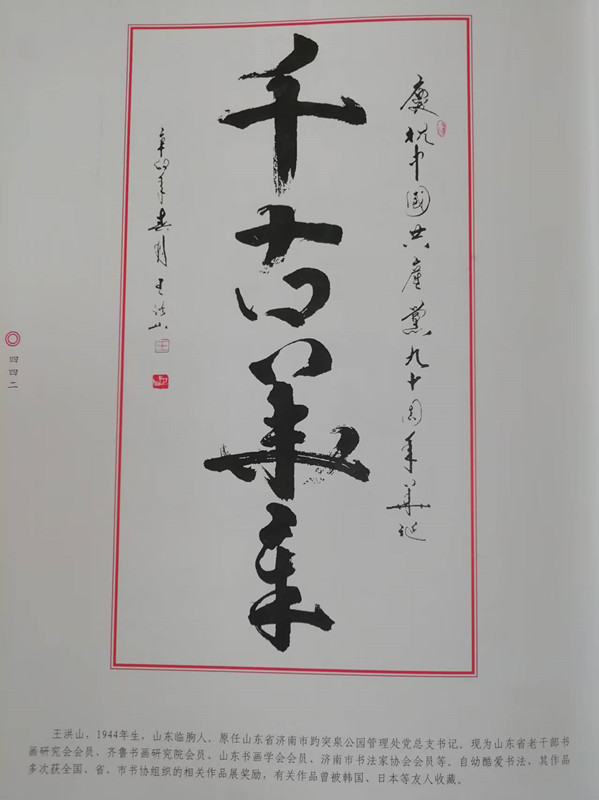 慶祝中國共產黨九十周年華誕
千古華章
辛卯年春月王洪山
四四二
王洪山，1944年生，山东临朐人。原任山东省济南市趵突泉公园管理处党总支书记。现为山东省老干部书
画研究会会员、齐鲁书画研究院会员、山东书画学会会员、济南市书法家协会会员等。自幼酷爱书法，其作品
多次获全国、省、市书协组织的相关作品展奖励，有关作品曾被韩国、日本等友人收藏。